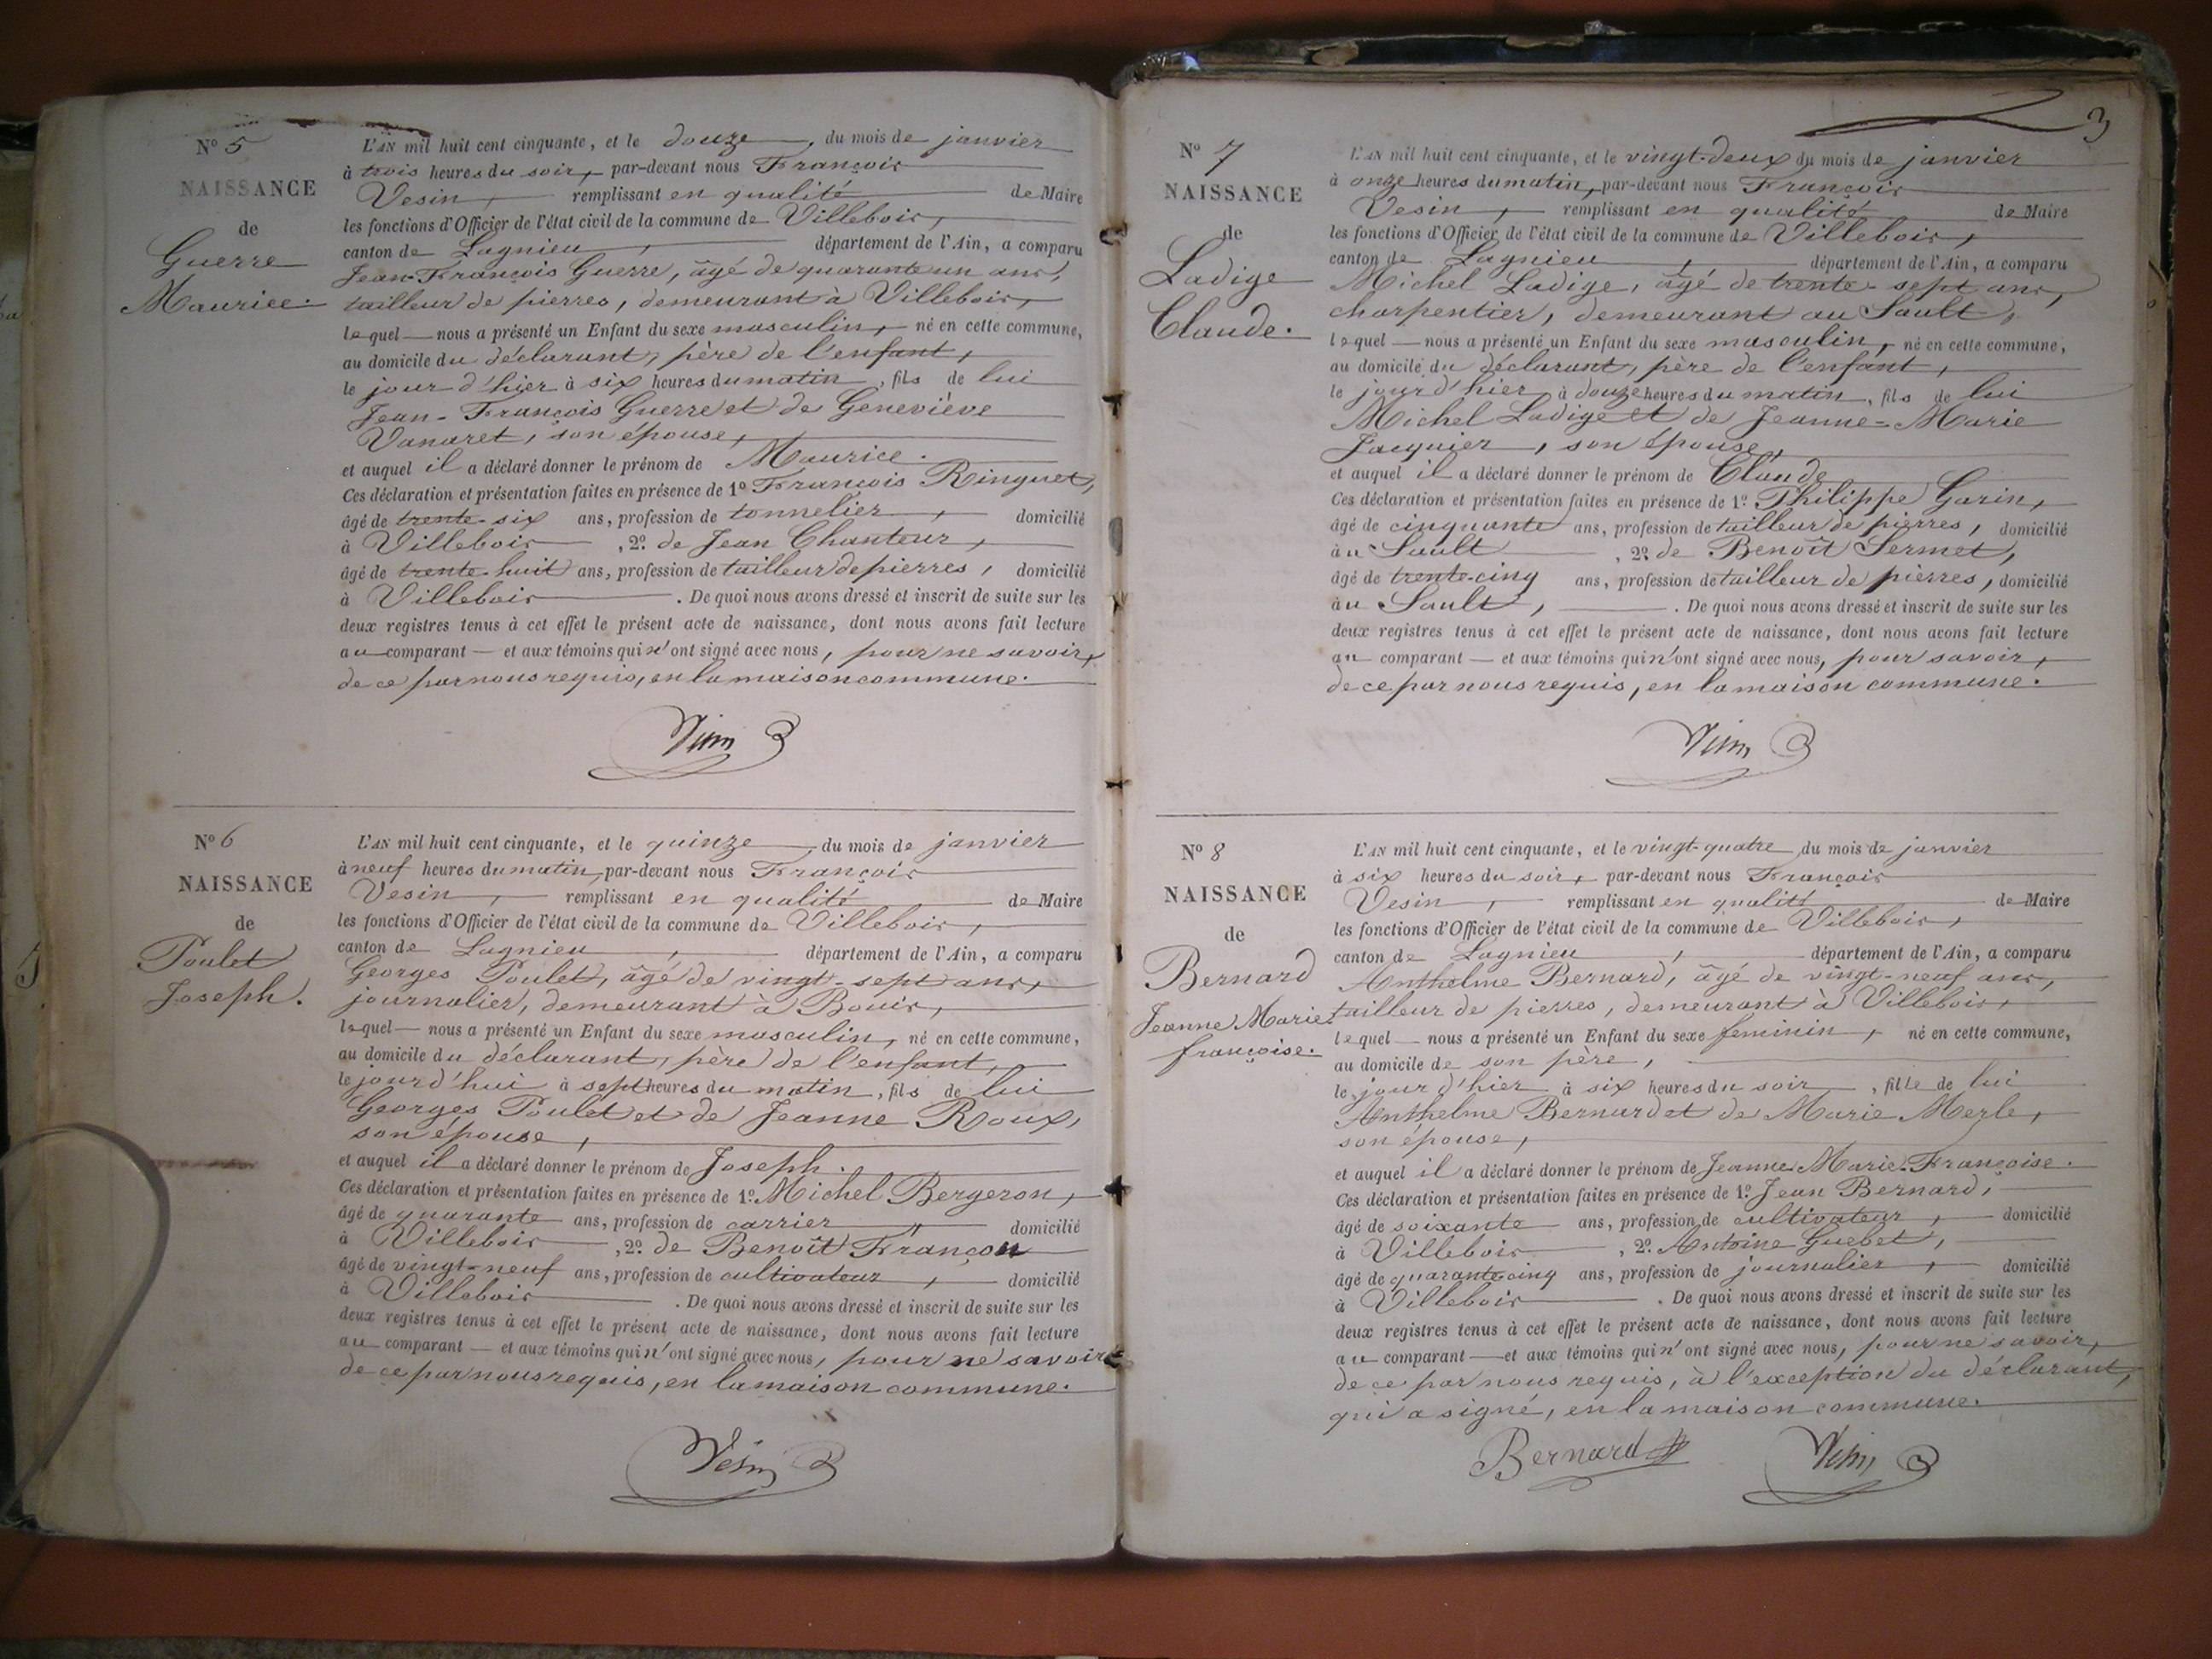 Nº 5
NAISSANCE
de
Guerre
Maurice.
L'AN mil huit cent cinquante, et le douze, du mois de janvier
à trois heures du soir, par-devant nous François
Vesin, remplissant en qualité de Maire
les fonctions d'Officier de l'état civil de la commune de Villebois,
canton de Lagnieu, département de l'Ain, a comparu
Jean-François Guerre, âgé de quarante un ans,
tailleur de pierres, demeurant à Villebois,
lequel — nous a présenté un Enfant du sexe masculin, né en cette commune,
au domicile du déclarant, père de l'enfant,
le jour d'hier à six heures du matin, fils de lui
Jean-François Guerre et de Geneviève
Vanaret, son épouse,
et auquel il a déclaré donner le prénom de Maurice.
Ces déclaration et présentation faites en présence de 1º François Ringuet,
âgé de trente-six ans, profession de tonnelier, domicilié
à Villebois, 2º de Jean Chanteur,
âgé de trente-huit ans, profession de tailleur de pierres, domicilié
à Villebois. De quoi nous avons dressé et inscrit de suite sur les
deux registres tenus à cet effet le présent acte de naissance, dont nous avons fait lecture
au comparant — et aux témoins qui n'ont signé avec nous, pour ne savoir,
de ce par nous requis, en la maison commune.
Vesin
Nº 6
NAISSANCE
de
Poulet
Joseph.
L'AN mil huit cent cinquante, et le quinze, du mois de janvier
à neuf heures du matin, par-devant nous François
Vesin, remplissant en qualité de Maire
les fonctions d'Officier de l'état civil de la commune de Villebois,
canton de Lagnieu, département de l'Ain, a comparu
Georges Poulet, âgé de vingt-sept ans,
journalier, demeurant à Bouis,
lequel — nous a présenté un Enfant du sexe masculin, né en cette commune,
au domicile du déclarant, père de l'enfant,
le jourd'hui à sept heures du matin, fils de lui
Georges Poulet et de Jeanne Roux,
son épouse,
et auquel il a déclaré donner le prénom de Joseph.
Ces déclaration et présentation faites en présence de 1º. Michel Bergeron,
âgé de quarante ans, profession de carrier domicilié
à Villebois, 2º. de Benoît Françon
âgé de vingt-neuf ans, profession de cultivateur, domicilié
à Villebois. De quoi nous avons dressé et inscrit de suite sur les
deux registres tenus à cet effet le présent acte de naissance, dont nous avons fait lecture
au comparant — et aux témoins qui n'ont signé avec nous, pour ne savoir
de ce par nous requis, en la maison commune.
Vesin
3
Nº 7
NAISSANCE
de
Ladige
Claude.
L'AN mil huit cent cinquante, et le vingt-deux du mois de janvier
à onze heures du matin, par-devant nous François
Vesin, remplissant en qualité de Maire
les fonctions d'Officier de l'état civil de la commune de Villebois,
canton de Lagnieu, département de l'Ain, a comparu
Michel Ladige, âgé de trente-sept ans,
charpentier, demeurant au Sault,
lequel — nous a présenté un Enfant du sexe masculin, né en cette commune,
au domicile du déclarant, père de l'enfant,
le jour d'hier à douze heures du matin, fils de lui
Michel Ladige et de Jeanne-Marie
Jacquier, son épouse,
et auquel il a déclaré donner le prénom de Claude
Ces déclaration et présentation faites en présence de 1º. Philippe Garin,
âgé de cinquante ans, profession de tailleur de pierres, domicilié
àu Sault, 2º. de Benoît Sermet,
âgé de trente-cinq ans, profession de tailleur de pierres, domicilié
àu Sault, . De quoi nous avons dressé et inscrit de suite sur les
deux registres tenus à cet effet le présent acte de naissance, dont nous avons fait lecture
au comparant — et aux témoins qui n'ont signé avec nous, pour savoir,
de ce par nous requis, en la maison commune.
Vesin
Nº 8
NAISSANCE
de
Bernard
Jeanne Marie
françoise.
L'AN mil huit cent cinquante, et le vingt-quatre du mois de janvier
à six heures du soir, par-devant nous François
Vesin, remplissant en qualité de Maire
les fonctions d'Officier de l'état civil de la commune de Villebois,
canton de Lagnieu, département de l'Ain, a comparu
Anthelme Bernard, âgé de vingt-neuf ans,
tailleur de pierres, demeurant à Villebois,
lequel — nous a présenté un Enfant du sexe feminin, né en cette commune,
au domicile de son père,
le jour d'hier à six heures du soir, fille de lui
Anthelme Bernard et de Marie Merle,
son épouse,
et auquel il a déclaré donner le prénom de Jeanne-Marie-Françoise.
Ces déclaration et présentation faites en présence de 1º. Jean Bernard,
âgé de soixante ans, profession de cultivateur, domicilié
à Villebois, 2º. Antoine Guebet,
âgé de quarante-cinq ans, profession de journalier, domicilié
à Villebois. De quoi nous avons dressé et inscrit de suite sur les
deux registres tenus à cet effet le présent acte de naissance, dont nous avons fait lecture
au comparant — et aux témoins qui n'ont signé avec nous, pour ne savoir,
de ce par nous requis, à l'exception du déclarant,
qui a signé, en la maison commune.
Bernard Vesin